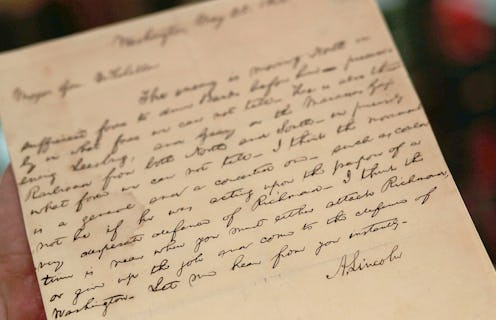 Washington May 25. 186
Major Gen. McClellan
The enemy is moving North in
sufficient force to drive Banks before him – precise
ly in what force we can not tell. He is also threat
ening Leesburg, and Geary on the Manassas Gap
Railroad from both North and South – in precisely
what force we can not tell – I think the movement
is a general and a concerted one – such as could
not be if he was acting upon the purpose of a
very desperate defence of Richmond – I think the
time is near when you must either attack Richmond,
or give up the job and come to the defence of
Washington. Let me hear from you instantly –
A. Lincoln